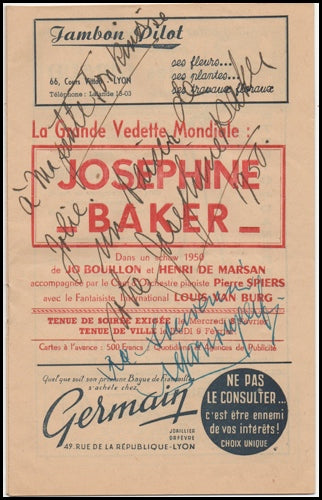 Jambon Pilot
ses fleurs...
ses plantes...
ses travaux floraux
66, Cours Vitton - LYON
Téléphone : Lalande 18-03
La Grande Vedette Mondiale :
JOSÉPHINE
BAKER
Dans un show 1950
de JO BOUILLON et HENRI DE MARSAN
accompagnée par le Orchestre pianiste Pierre SPIERS
avec le Fantaisiste International LOUIS VAN BURG
TENUE DE SOIRÉE EXIGÉE Mercredi
TENUE DE VILLE le JEUDI 9
Cartes à l'avance : 500 Francs de Publicité
à ma petite
Jolie
un
Joséphine Baker
1950.
Quel que soit son prénom Bague de Fiançailles
s'achète chez
Germain
JOAILLIER
ORFÈVRE
49, RUE DE LA RÉPUBLIQUE - LYON
NE PAS
LE CONSULTER...
c'est être ennemi
de vos intérêts !
CHOIX UNIQUE